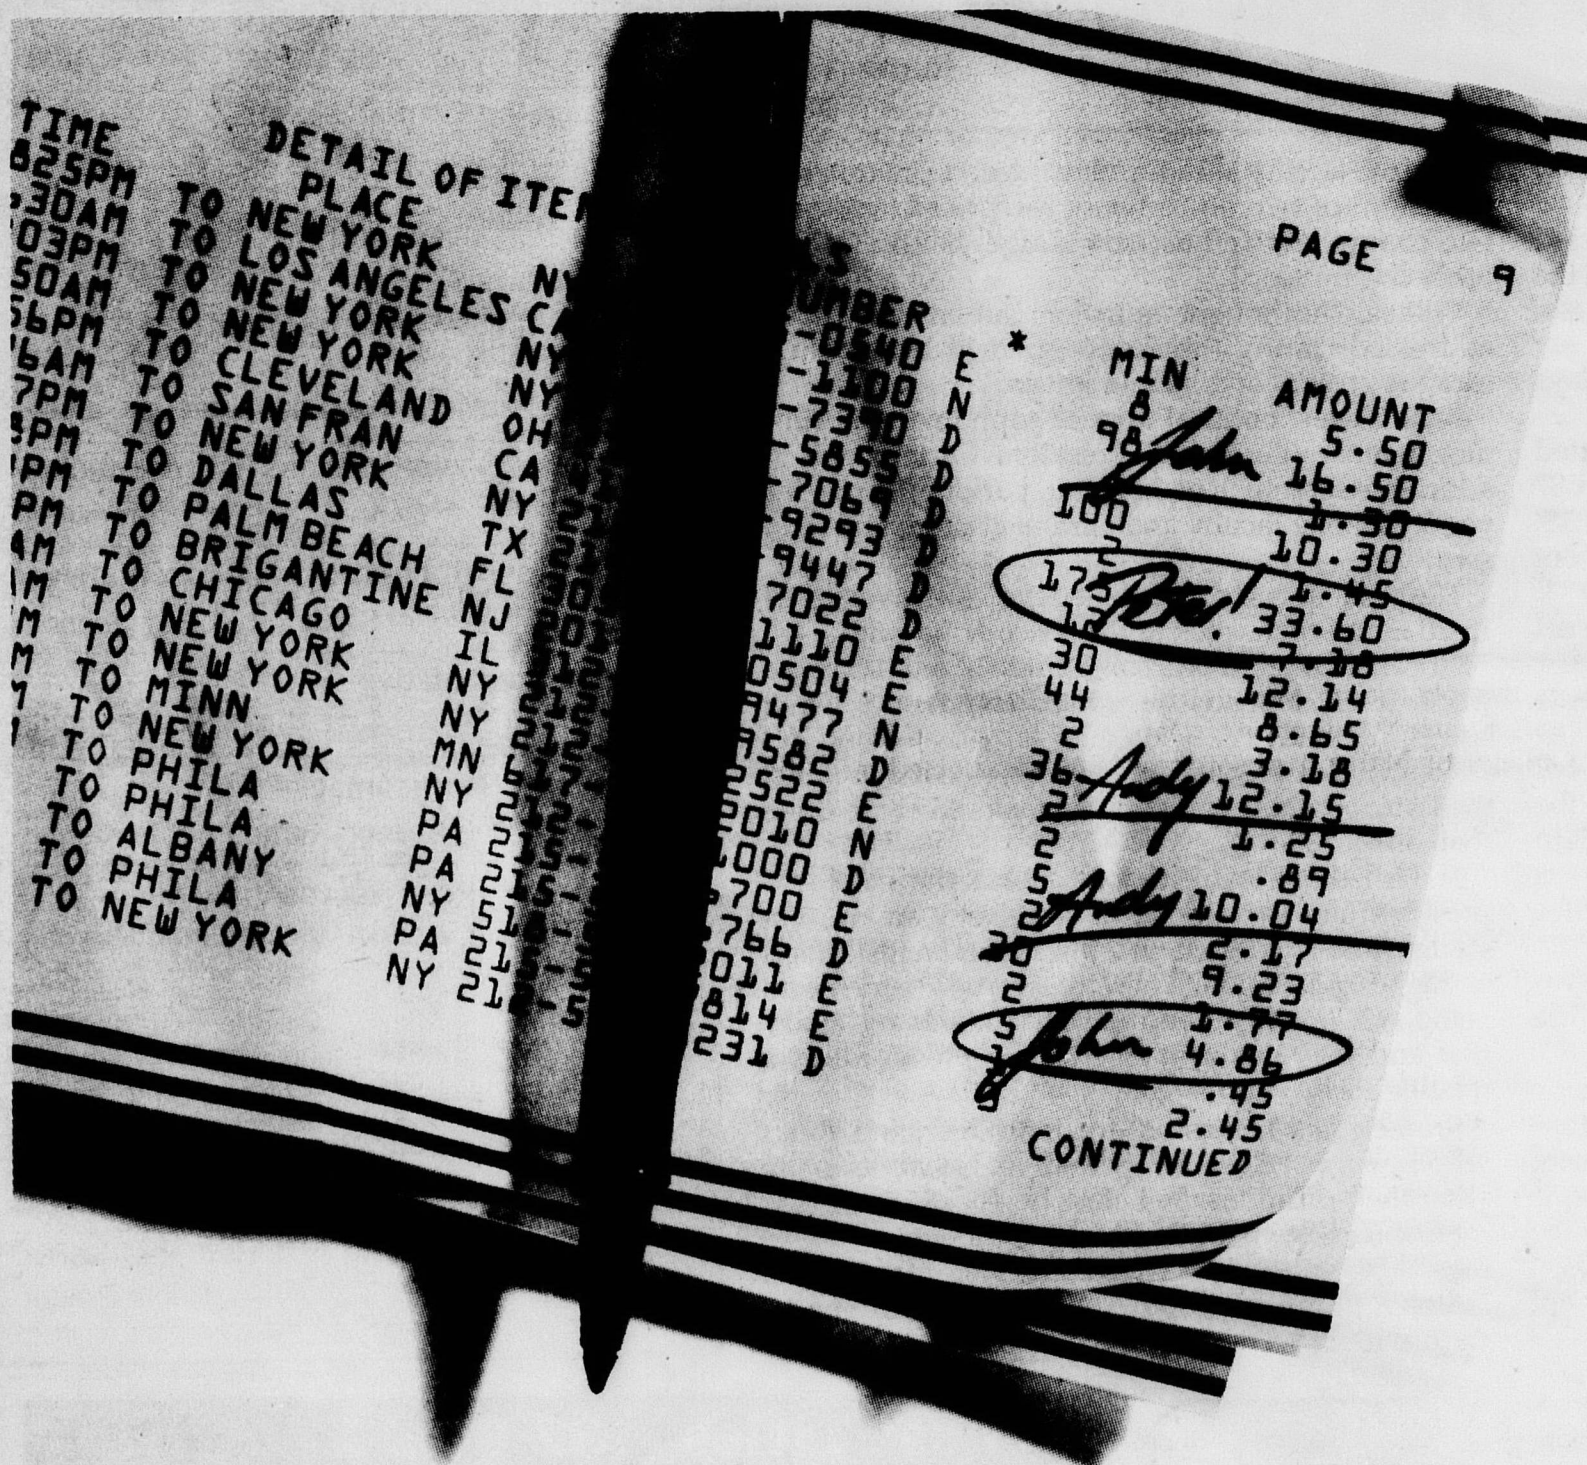 DETAIL OF ITE PAGE 9
TIME PLACE UMBER * MIN AMOUNT
825PM TO NEW YORK NY -0540 E 8 5.50
30AM TO LOS ANGELES CA -1100 N 98 John 16.50
03PM TO NEW YORK NY -7390 D 1.30
50AM TO NEW YORK NY -5855 D 100 10.30
56PM TO CLEVELAND OH -7069 D 2 1.45
6AM TO SAN FRAN CA -9293 D 175 Peter! 33.60
7PM TO NEW YORK NY 9447 D 12 7.18
PM TO DALLAS TX 7022 D 30 12.14
PM TO PALM BEACH FL 1110 E 44 8.65
PM TO BRIGANTINE NJ 0504 E 2 3.18
AM TO CHICAGO IL 9477 N 36 Andy 12.15
M TO NEW YORK NY 9582 D 2 1.25
M TO NEW YORK NY 2522 E 2 .89
M TO MINN MN 2010 N 5 Andy 10.04
TO NEW YORK NY 1000 D 2 2.17
TO PHILA PA 700 E 20 9.23
TO PHILA PA 766 D 2 1.77
TO ALBANY NY 011 E 5 John 4.86
TO PHILA PA 814 E .45
TO NEW YORK NY 231 D 2.45
CONTINUED